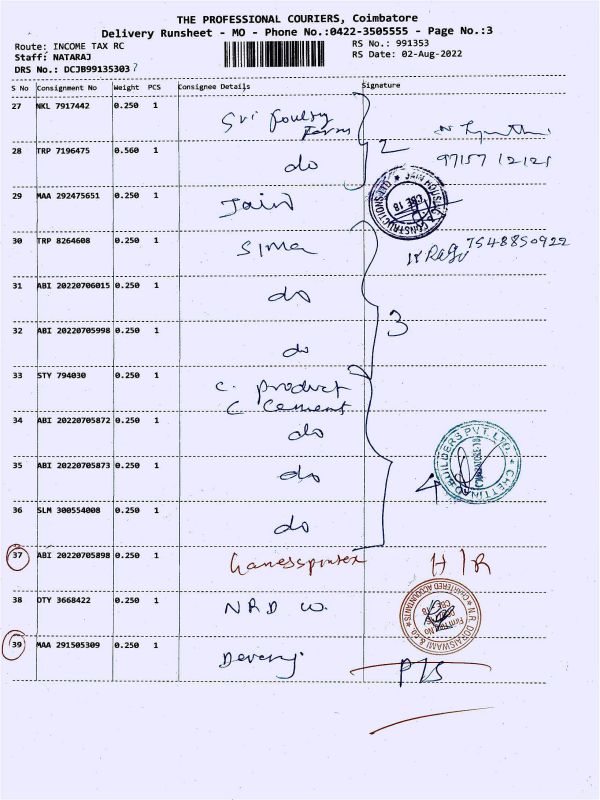 THE PROFESSIONAL COURIERS, Coimbatore
Delivery Runsheet - MO - Phone No.:0422-3505555 - Page No.:3
Route: INCOME TAX RC
RS No.: 991353
Staff: NATARAJ
RS Date: 02-Aug-2022
DRS No.: DCJB99135303
S No Consignment No Weight PCS Consignee Details Signature
27 NKL 7917442 0.250 1 Sri Poultry
Farm
28 TRP 7196475 0.560 1 do 2 97157 12121
29 MAA 292475651 0.250 1 Jain
JAIN HOUSING & CONSTRUCTIONS LTD CBE 18
30 TRP 8264608 0.250 1 Sima 7548850922
31 ABI 20220706015 0.250 1 do
32 ABI 20220705998 0.250 1 do 3
33 STY 794030 0.250 1 C. Product
C Cement
34 ABI 20220705872 0.250 1 do
35 ABI 20220705873 0.250 1 do 4
CHETTINAD BUILDERS PVT. LTD.
36 SLM 300554008 0.250 1 do
37 ABI 20220705898 0.250 1 H/R
38 DTY 3668422 0.250 1 NRD w.
N.R. DORAISWAMI & CO. CHARTERED ACCOUNTANTS
39 MAA 291505309 0.250 1